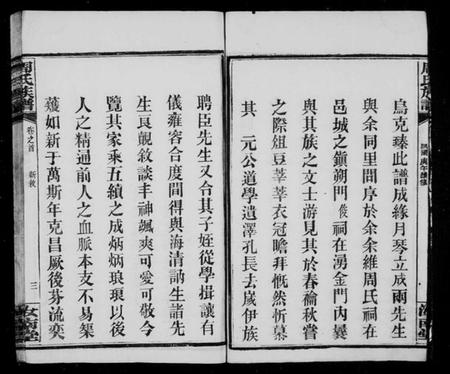 烏克臻此譜成緣月琴立成雨先生
與余同里閈序於余余維周氏祠在
邑城之鎮朔門後祠在湧金門內曩
與其族之文士游見其於春禴秋嘗
之際俎豆莘莘衣冠瞻拜慨然忻慕
其 元公道學遺澤孔長去歲伊族
周氏族譜
汝南堂
周氏族譜
卷之首 新敘 三
汝南堂
聘臣先生又合其子姪從學揖讓有
儀雍容合度間得與海清訥生諸先
生長覿敘談丰神颯爽可愛可敬今
覽其家乘五續之成炳炳琅琅以後
人之精通前人之血脈本支不易棃
蘐如新于萬斯年克昌厥後芬流奕